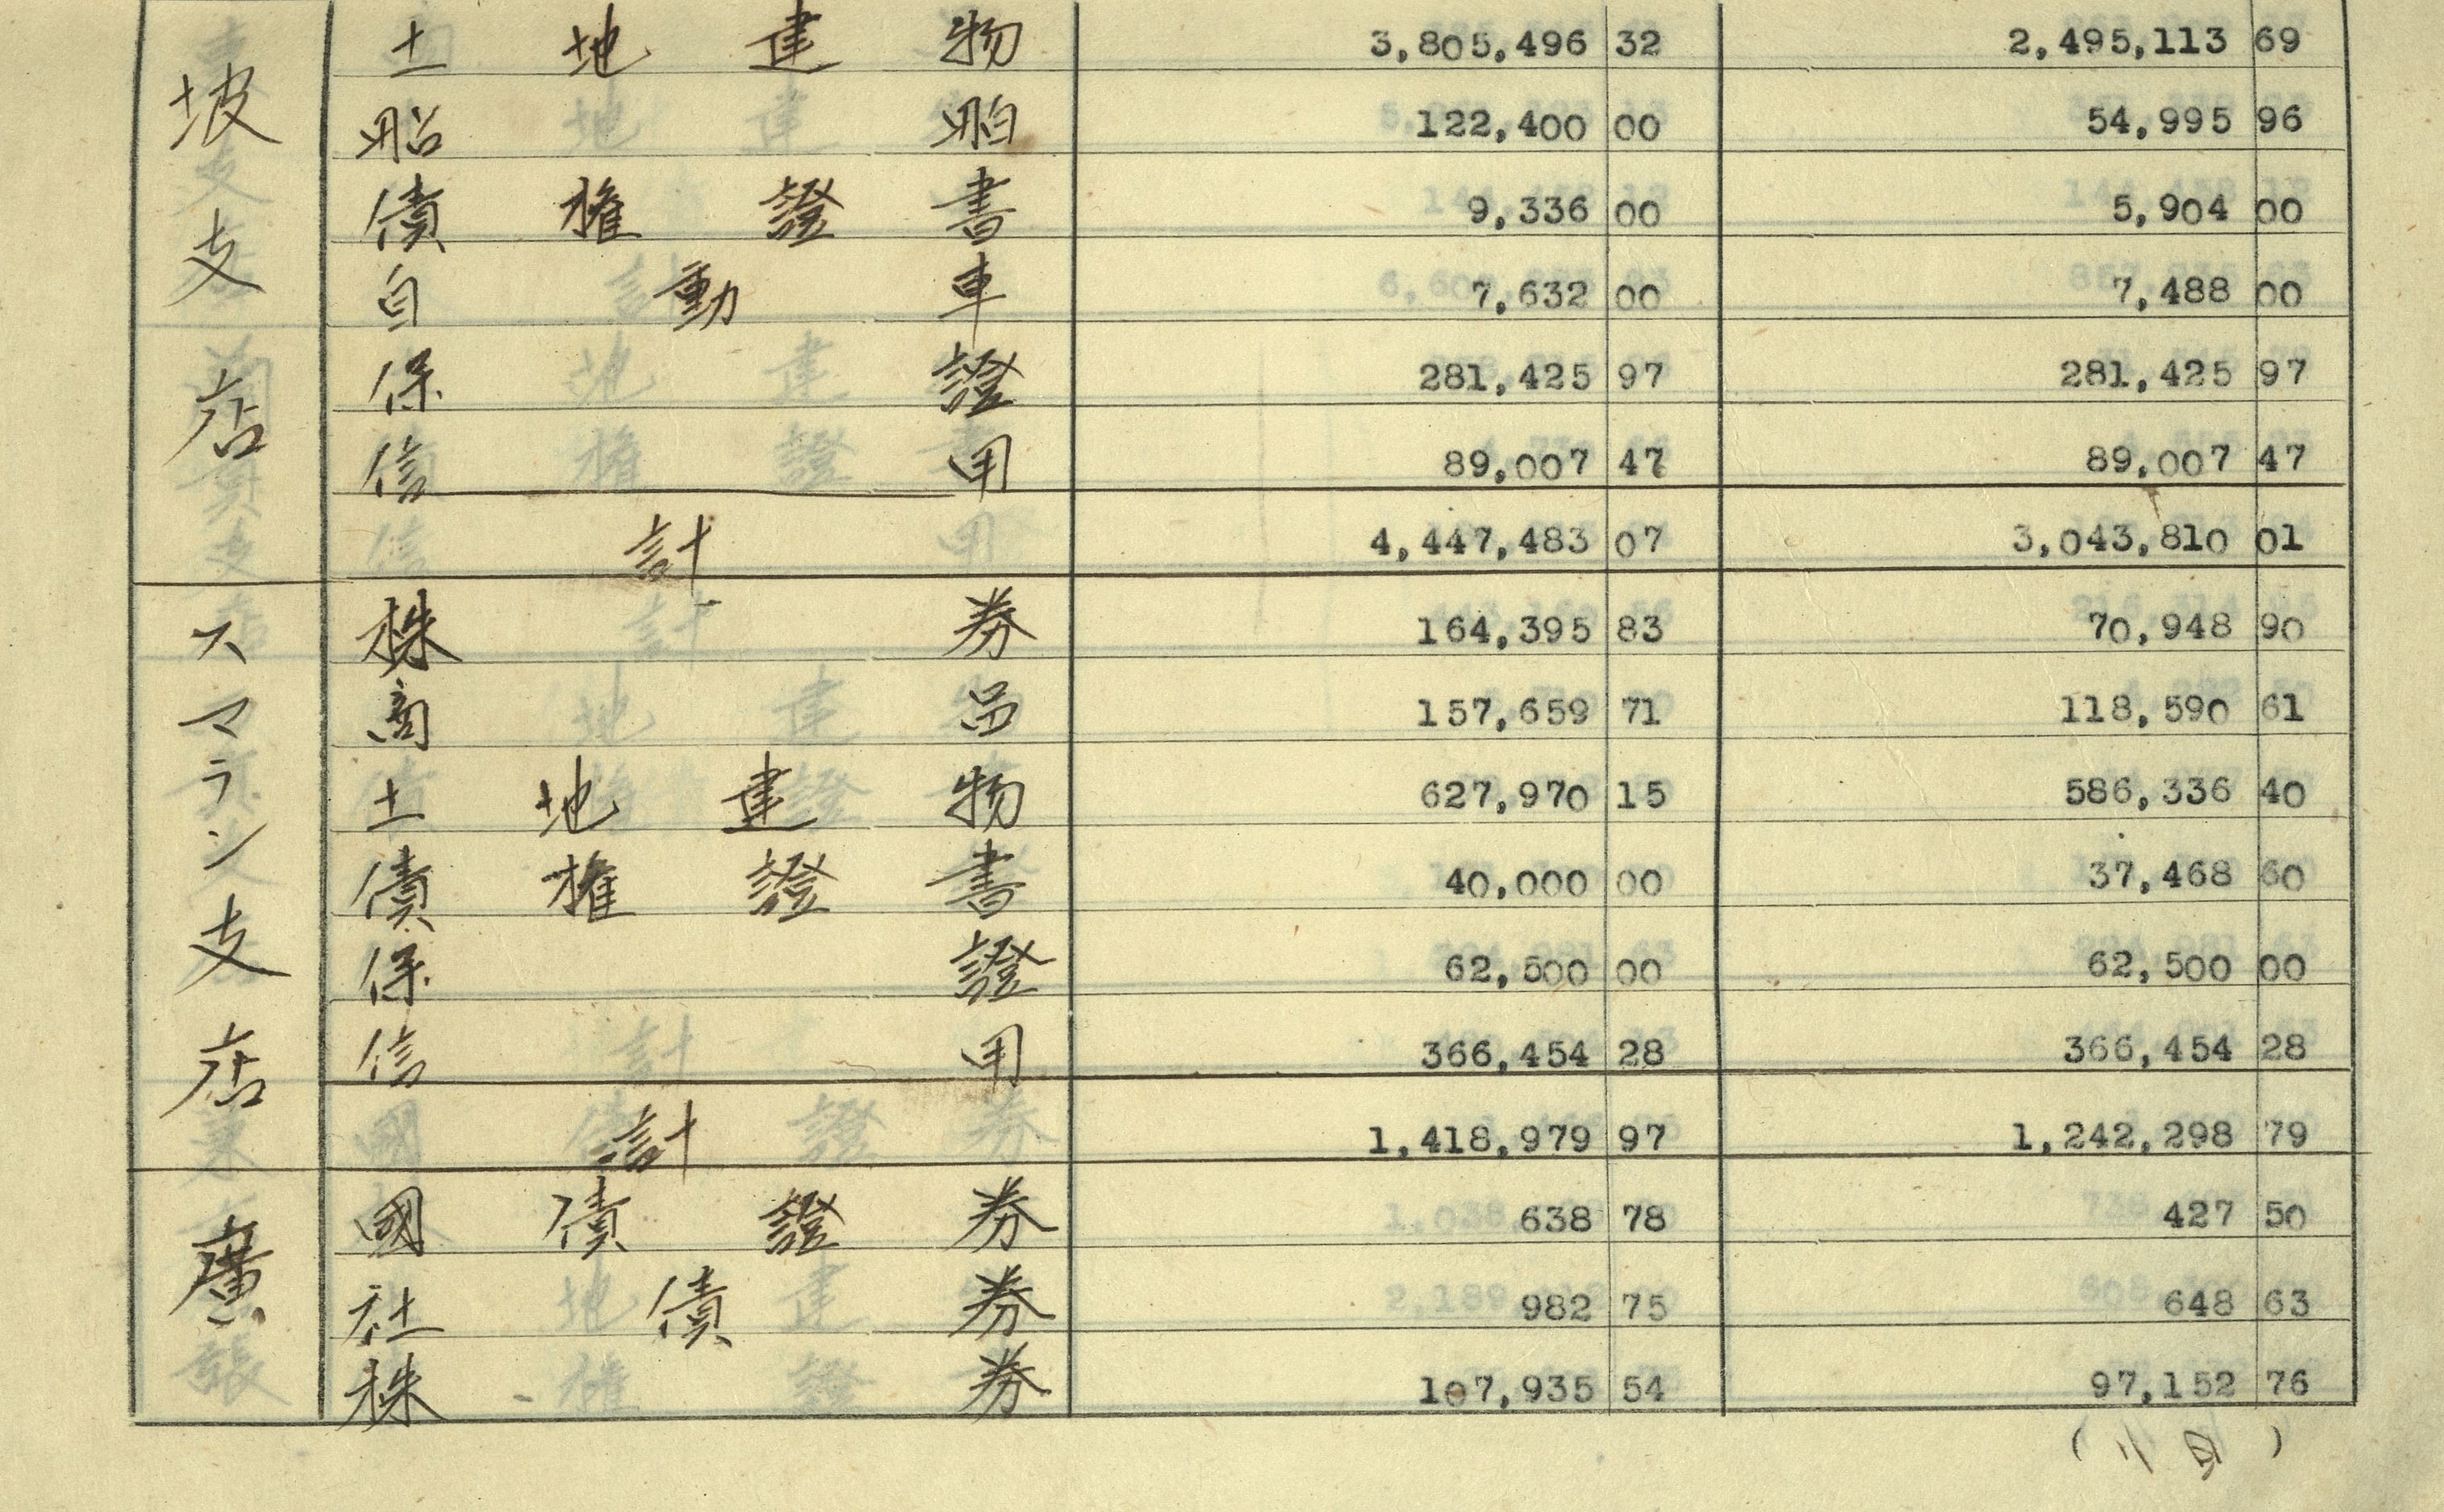 坡支店
土地建物 3,805,496 32 2,495,113 69
船舶 122,400 00 54,995 96
債權證書 9,336 00 5,904 00
自動車 7,632 00 7,488 00
保證 281,425 97 281,425 97
信用 89,007 47 89,007 47
計 4,447,483 07 3,043,810 01
スマラン支店
株券 164,395 83 70,948 90
商品 157,659 71 118,590 61
土地建物 627,970 15 586,336 40
債權證書 40,000 00 37,468 60
保證 62,500 00 62,500 00
信用 366,454 28 366,454 28
計 1,418,979 97 1,242,298 79
廣
國債證券 638 78 427 50
社債券 982 75 648 63
株券 107,935 54 97,152 76